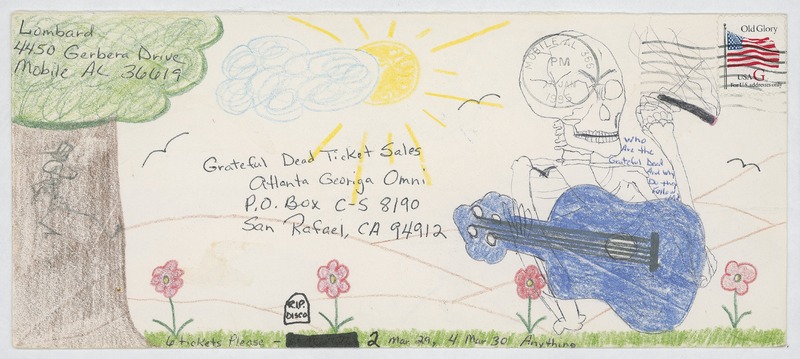 Lombard
4450 Gerbera Drive
Mobile AL 36619
MOBILE, AL 366
PM
JAN
1995
Old Glory
USA G
For U.S. addresses only
Grateful Dead Ticket Sales
Atlanta Georiga Omni
P.O. Box C-S 8190
San Rafael, CA 94912
Who
Are the
Grateful Dead
And Why
Do they
R.I.P.
DISCO
6 tickets Please - 2 Mar 29, 4 Mar 30 Anything